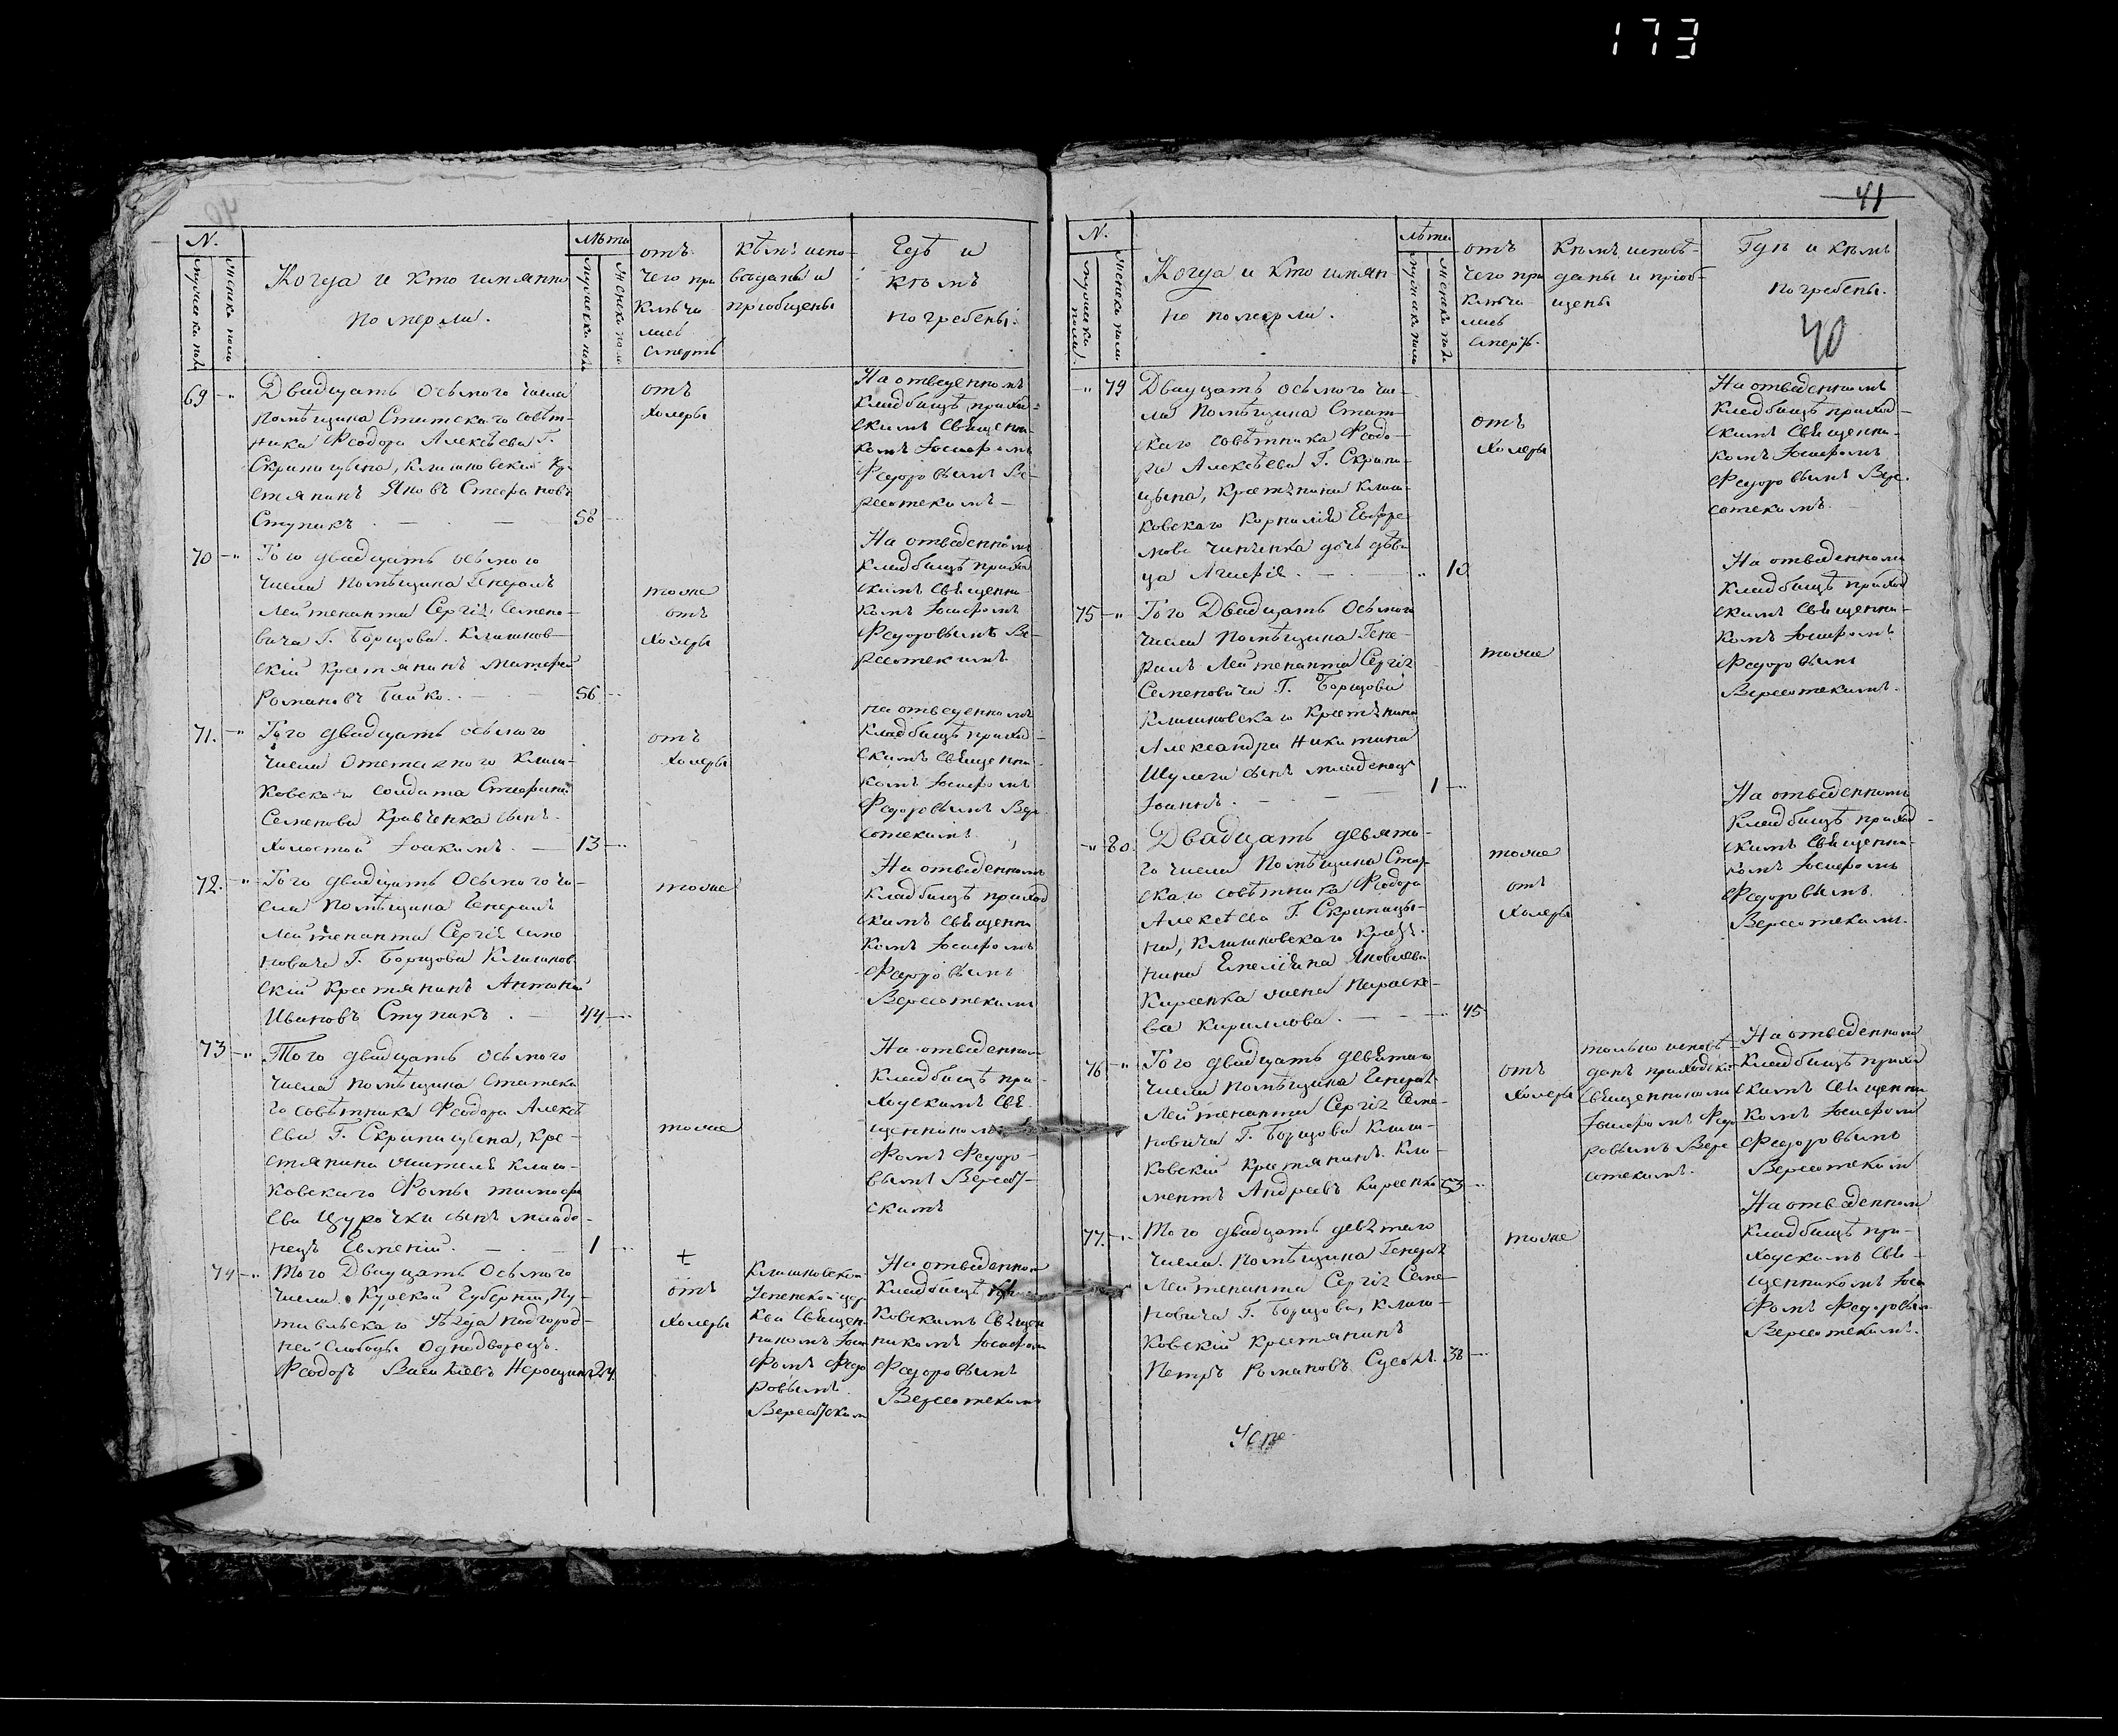 173
41
40
N.
мужеска пола
женска пола
Когда и кто имянно
померли.
Лѣта
мужеска пола
женска пола
отъ
чего при
ключи
лась
смерть
кѣмъ испо-
вѣданы и
приобщены
Гдѣ и
кѣмъ
погребены.
69
Двадцать осьмого числа
помѣщика Статскаго совѣт-
ника Феодора Алексѣева Г.
Скрипицына, Клишковскій Кре
стянинъ Яковъ Стефановъ
Ступакъ
58
отъ
холеры
На отведенномъ
кладбищѣ приход-
скимъ священни-
комъ Іосифомъ
Федоровымъ Ве-
ресотскимъ
70
Того двадцать осьмого
числа помѣщика Генералъ
Лейтенанта Сергія Семено-
вича Г. Борщова. Клишков-
скій крестянинъ Матфей
Романовъ Гайко.
56
тоже
отъ
холеры
На отведенномъ
кладбищѣ приход
скимъ священни-
комъ Іосифомъ
Федоровымъ Ве-
ресотскимъ
71.
Того двадцать осьмого
числа отстазного Клиш-
ковскаго солдата Стефана
Семенова Кравченка сынъ
холостой Іоакимъ.
13
отъ
холеры
на отведенномъ
кладбищѣ приход-
скимъ священни-
комъ Іосифомъ
Федоровымъ Вере
сотскимъ
72.
Того двадцать осьмого чи-
сла помѣщика Генералъ
Лейтенанта Сергія Семе
новича Г. Борщова Клишков
скій крестянинъ Антоній
Ивановъ Ступакъ.
44
тоже
На отведенномъ
кладбищѣ приход
скимъ священни
комъ Іосифомъ
Федоровымъ
Вересотскимъ
73
Того двадцать осьмого
числа помѣщика Статска
го совѣтника Феодора Алексѣ
ева Г. Скрипицына, кре-
стянина жителя Клиш-
ковскаго Фомы Тимофе
ева Цурочки сынъ младе-
нецъ Евменій.
1
тоже
На отведенном
кладбищѣ при-
ходскимъ свя-
щенникомъ
фомъ Федоро-
вымъ Вересот-
скимъ
74
Того Двадцать осьмого
числа. Курской Губерніи, Пу-
тивльскаго уѣзда подгород-
ней слободы однодворецъ
Феодоръ Васильевъ
24
отъ
холеры
Клишковской
Успенской цер
кви священ
никомъ Іоси
фомъ Федо
ровымъ
Вересотским
На отведенном
кладбищѣ
ковскимъ священ
никомъ Іосифом
Федоровымъ
Вересотскимъ
N.
мужеска
пола.
женска пола
Когда и кто имян
но померли.
лѣта
мужеска пола
женска пола
отъ
чего при
ключи
лась
смерть.
Кѣмъ исповѣ-
даны и приоб-
щены
Гдѣ и кѣмъ
погребены.
79
Двадцать осьмого чи-
сла Помѣщика Стат-
скаго совѣтника Феодо-
ра Алексѣева Г. Скрипи-
цына, крестянина Клиш-
ковскаго Корнилія Евфре
мова дочь дѣви
ца Агафія.
10
отъ
холеры
На отведенномъ
кладбищѣ приход-
скимъ священни-
комъ Іосифомъ
Федоровымъ Вере-
сотскимъ.
75
Того Двадцать осьмого
числа помѣщика Гене-
ралъ Лейтенанта Сергія
Семеновича Г. Борщова
Клишковскаго крестянина
Александра Никитина
Шулаги сынъ младенецъ
Іоаннъ.
1
тоже
На отведенном
кладбищѣ приход
скимъ священни-
комъ Іосифомъ
Федоровымъ
Вересотскимъ.
80.
Двадцать девято-
го числа помѣщика Стат-
скаго совѣтника Феодора
Алексѣева Г. Скрипицы-
на, Клишковскаго кресть-
нина Емеліяна Яковлева
Киреенка жена Параске-
ва Кириллова.
45
тоже
отъ
холеры
На отведенномъ
кладбищѣ приход-
скимъ священни-
комъ Іосифомъ
Федоровымъ
Вересотскимъ.
76
Того двадцать девятого
числа помѣщика Генералъ
Лейтенанта Сергія Семе-
новича Г. Борщова Клиш-
ковскій крестянинъ Кли-
ментъ Андреевъ Киреенко
53
отъ
холеры
только исповѣ-
данъ приходски
священникомъ
Іосифомъ Федо
ровымъ Вере
сотскимъ.
На отведенном
кладбищѣ приход
скимъ священни
комъ Іосифомъ
Федоровымъ
Вересотским
77.
Того двадцать девятого
числа. помѣщика Генералъ
Лейтенанта Сергія Семе-
новича Г. Борщова, Клиш-
ковскій крестянинъ
Петръ Романовъ
38
тоже
На отведенном
кладбищѣ при-
ходскимъ свя-
щенникомъ Іоси
фомъ Федоровым
Вересотскимъ.